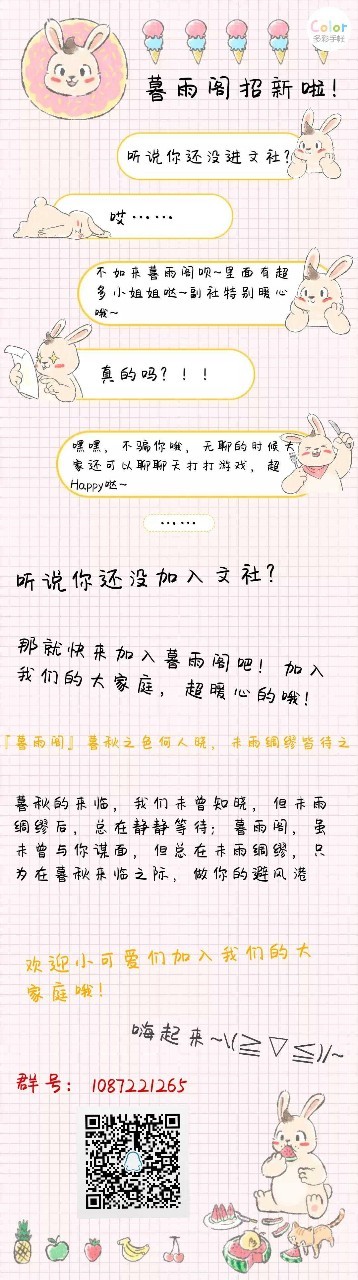 Color
多彩手帐
暮雨阁招新啦!
听说你还没进文社?
哎……
不如来暮雨阁呗~里面有超
多小姐姐哒~副社特别暖心
哦~
真的吗?!!!
嘿嘿,不骗你哦,无聊的时候大
家还可以聊聊天打打游戏,超
Happy哒~
……
听说你还没加入文社?
那就快来加入暮雨阁吧!加入
我们的大家庭,超暖心的哦!
『暮雨阁』暮秋之色何人晓,未雨绸缪皆待之
暮秋的来临,我们未曾知晓,但未雨
绸缪后,总在静静等待;暮雨阁,虽
未曾与你谋面,但总在未雨绸缪,只
为在暮秋来临之际,做你的避风港
欢迎小可爱们加入我们的大
家庭哦!
嗨起来~\(≧▽≦)/~
群号:1087221265